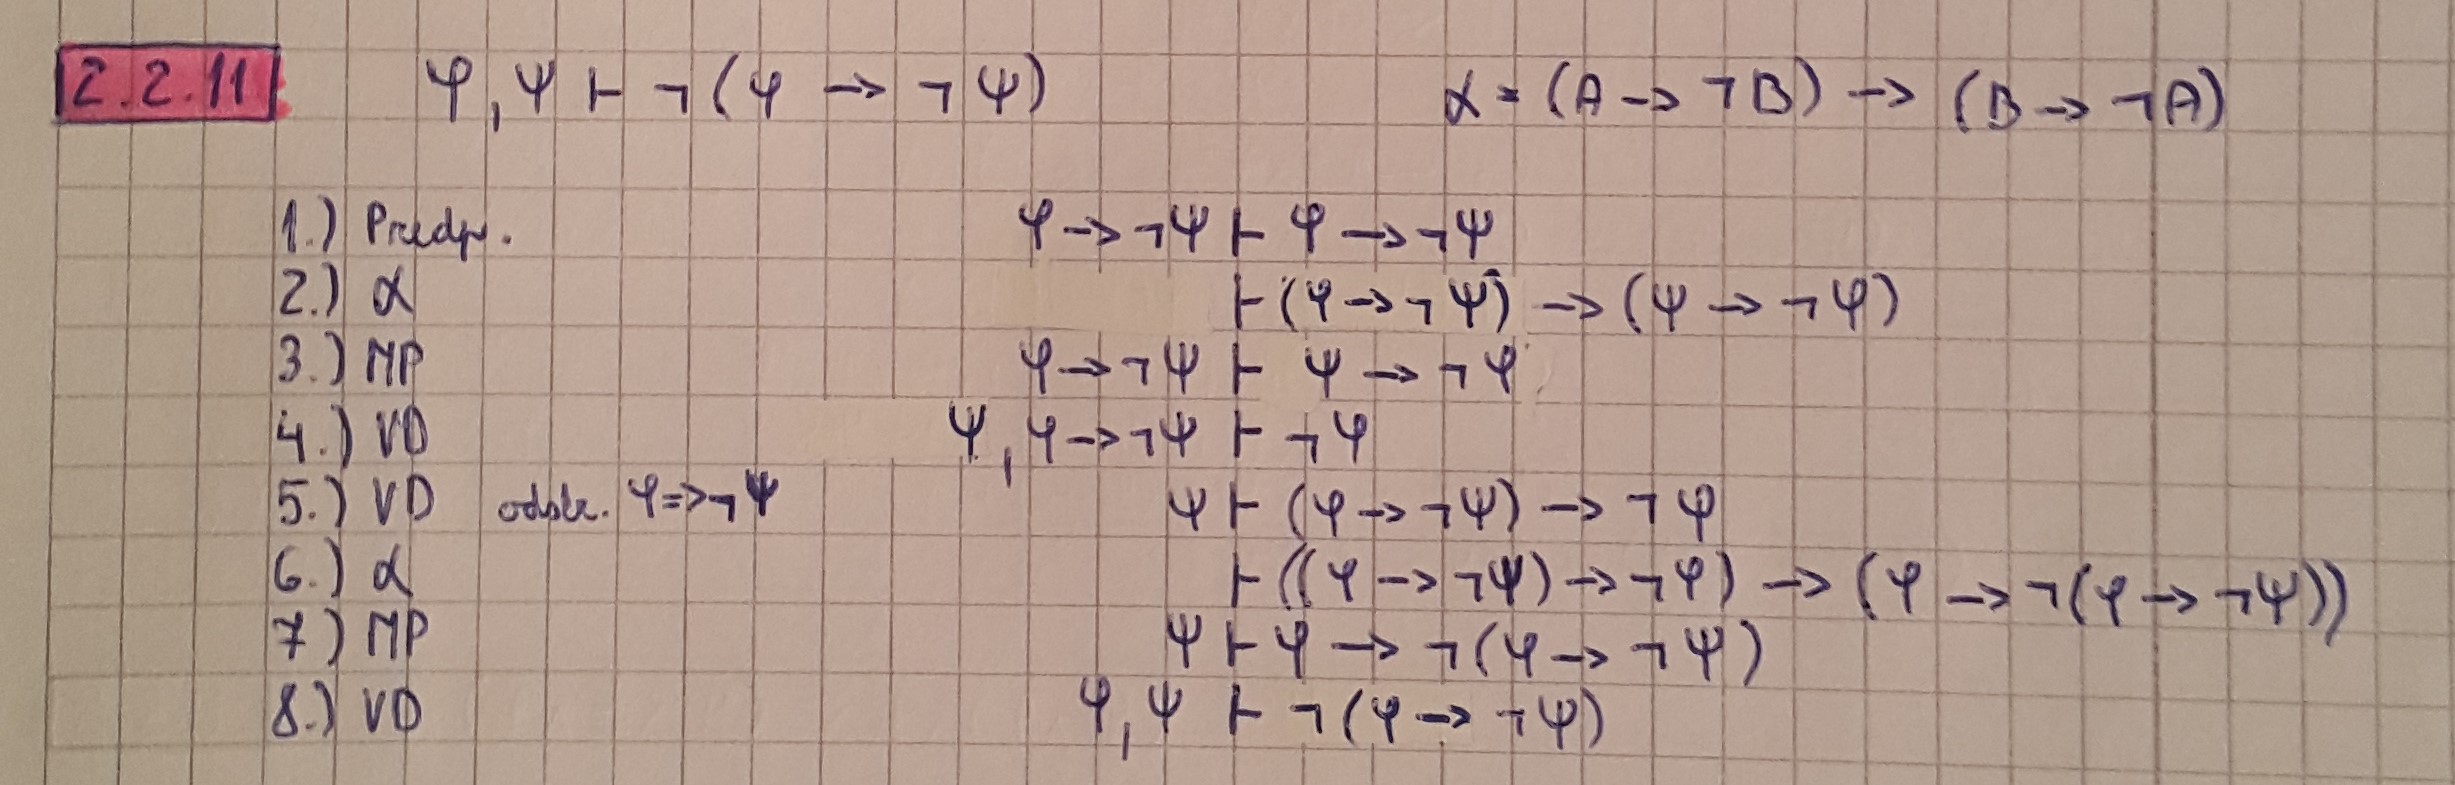 2.2.11 φ, ψ ⊢ ¬(φ → ¬ψ) α = (A → ¬B) → (B → ¬A)
1.) Předp. φ → ¬ψ ⊢ φ → ¬ψ
2.) α ⊢ (φ → ¬ψ) → (ψ → ¬φ)
3.) MP φ → ¬ψ ⊢ ψ → ¬φ
4.) VD ψ, φ → ¬ψ ⊢ ¬φ
5.) VD odstr. φ => ¬ψ ψ ⊢ (φ → ¬ψ) → ¬φ
6.) α ⊢ ((φ → ¬ψ) → ¬φ) → (φ → ¬(φ → ¬ψ))
7.) MP ψ ⊢ φ → ¬(φ → ¬ψ)
8.) VD φ, ψ ⊢ ¬(φ → ¬ψ)